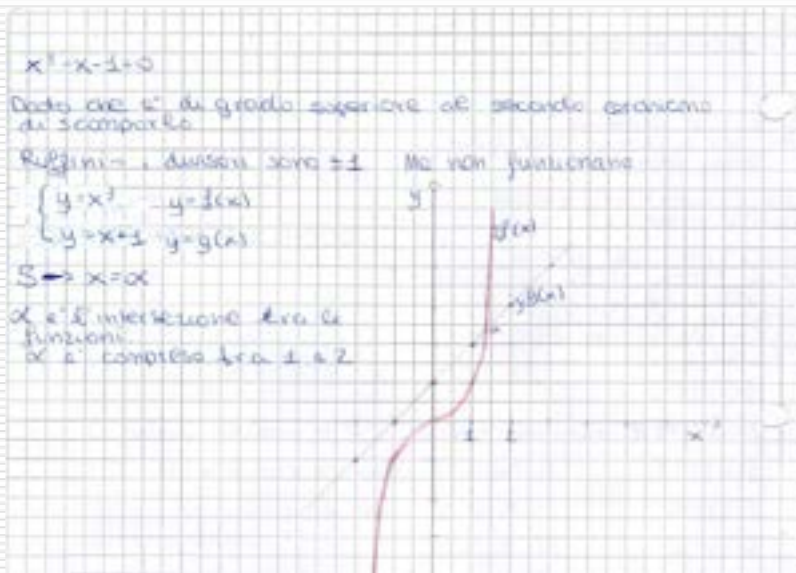 x³-x-1=0
Dato che è di grado superiore al secondo
di scomporlo
Ruffini → i divisori sono ±1 Ma non funzionano
{ y=x³ y=f(x)
y=x+1 y=g(x)
S → x=α
α è l'intersezione tra le
funzioni.
α è compreso tra 1 e 2
y
f(x)
g(x)
1
x